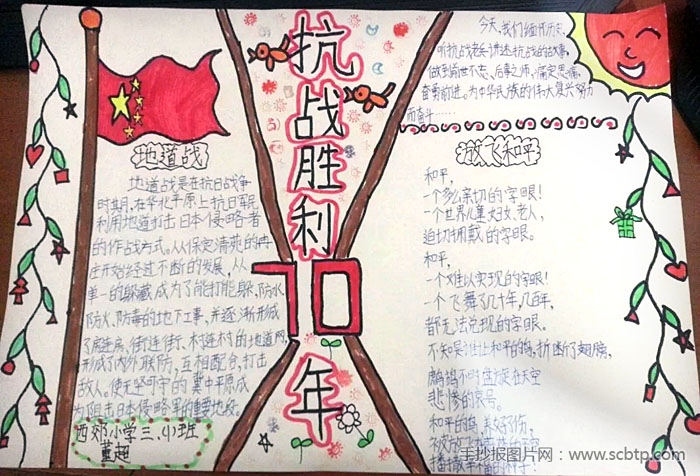 抗战胜利
70
年
地道战
地道战是在抗日战争
时期,在华北平原上抗日军民
利用地道打击日本侵略者
的作战方式。从保定清苑的冉
庄开始经过不断的发展,从
单一的躲藏成为了能打能躲,防水
防火、防毒的地下工事,并逐渐形成
了房连房,街连街、村连村的地道网,
形成了内外联防,互相配合,打击
敌人。使无坚可守的冀中平原成
为阻击日本侵略军的重要地段。
西郊小学三、(1)班
董超
今天,我们缅怀历史,
听抗战老兵讲述抗战的故事,
做到前世不忘、后事之师,痛定思痛,
奋勇前进。为中华民族的伟大复兴努力
而奋斗……
和平
和平,
一个多么亲切的字眼!
一个世界儿童、妇女、老人,
迫切拥戴的字眼。
和平,
一个难以实现的字眼!
一个飞舞了几十年、几百年,
都无法兑现的字眼。
不知是谁让和平的鸽,折断了翅膀,
鹧鸪不时盘旋在天空
悲惨的哀号。
和平的鸽,养好伤,
手抄报图片网:www.scbtp.com